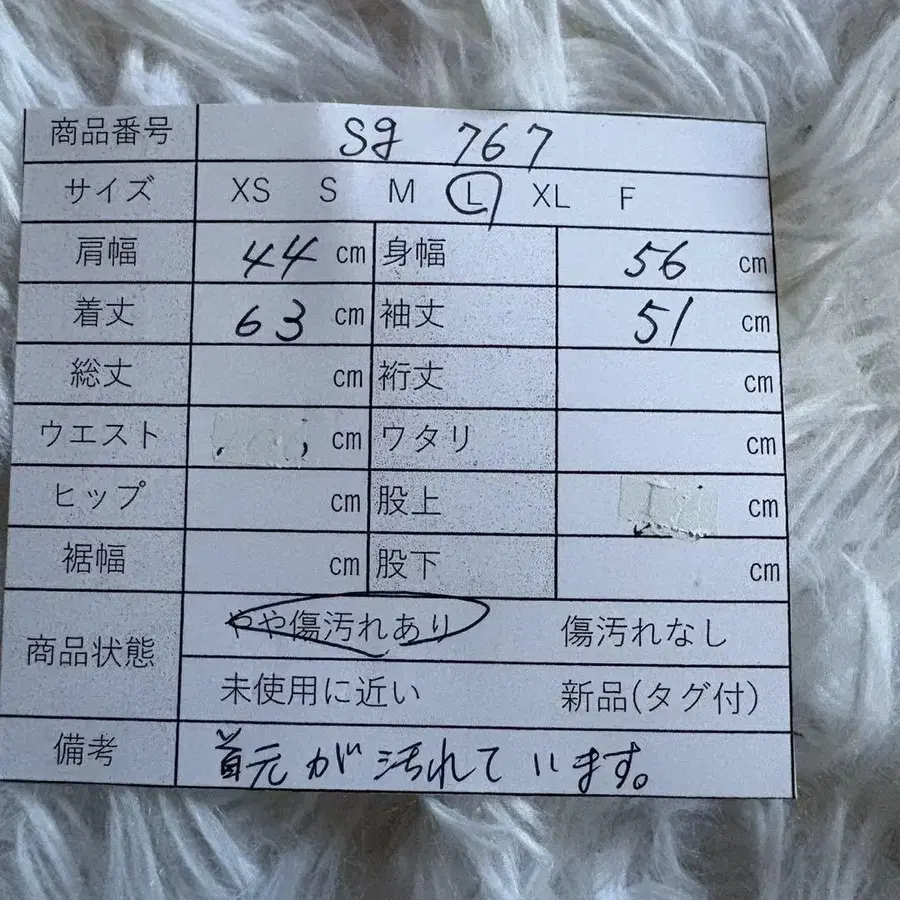 商品番号 Sg 767
サイズ XS S M L XL F
肩幅 44 cm 身幅 56 cm
着丈 63 cm 袖丈 51 cm
総丈 cm 裄丈 cm
ウエスト cm ワタリ cm
ヒップ cm 股上 cm
裾幅 cm 股下 cm
商品状態 やや傷汚れあり 傷汚れなし
未使用に近い 新品(タグ付)
備考 首元が汚れています。